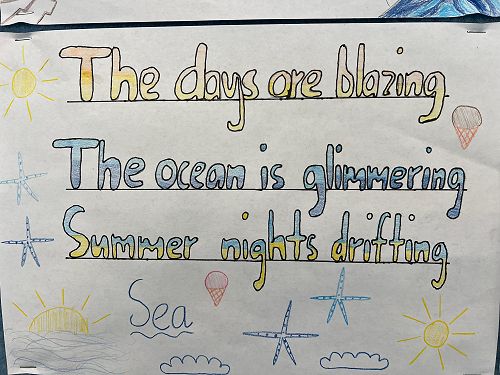 The days are blazing
The ocean is glimmering
Summer nights drifting
Sea